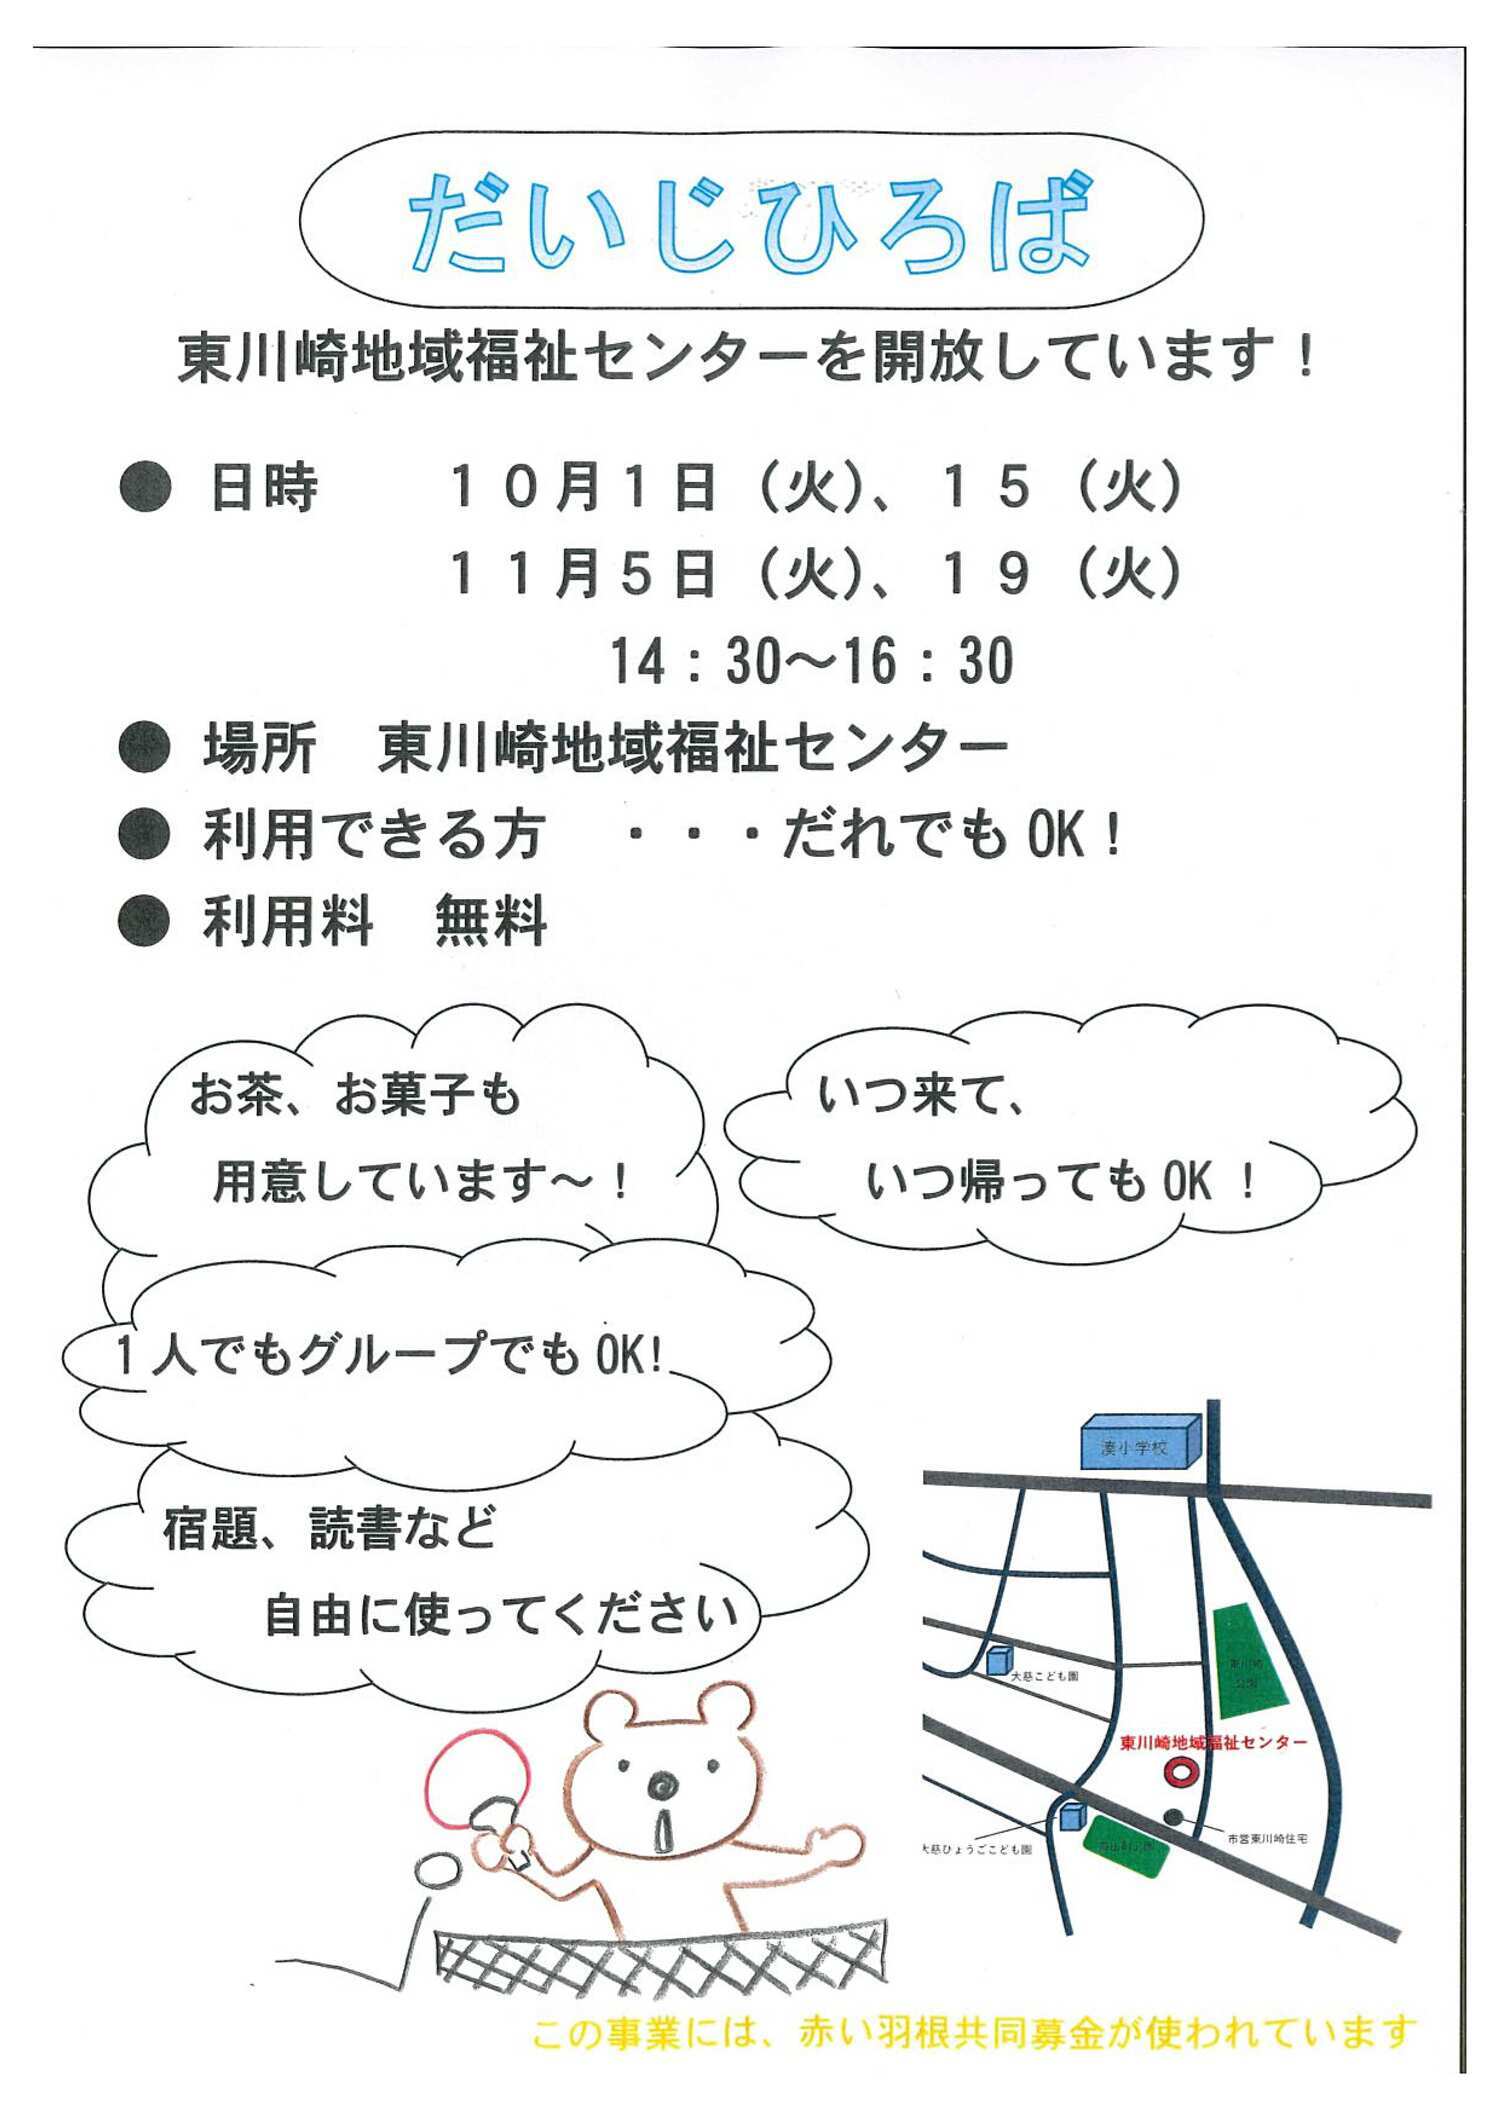 だいじひろば
東川崎地域福祉センターを開放しています！
● 日時　　１０月１日（火）、１５（火）
１１月５日（火）、１９（火）
14：30～16：30
● 場所　東川崎地域福祉センター
● 利用できる方　・・・だれでも OK！
● 利用料　無料
お茶、お菓子も
用意しています～！
いつ来て、
いつ帰っても OK！
1 人でもグループでも OK!
宿題、読書など
自由に使ってください
湊小学校
大慈こども園
東川崎
公園
東川崎地域福祉センター
市営東川崎住宅
大慈ひょうごこども園
この事業には、赤い羽根共同募金が使われています